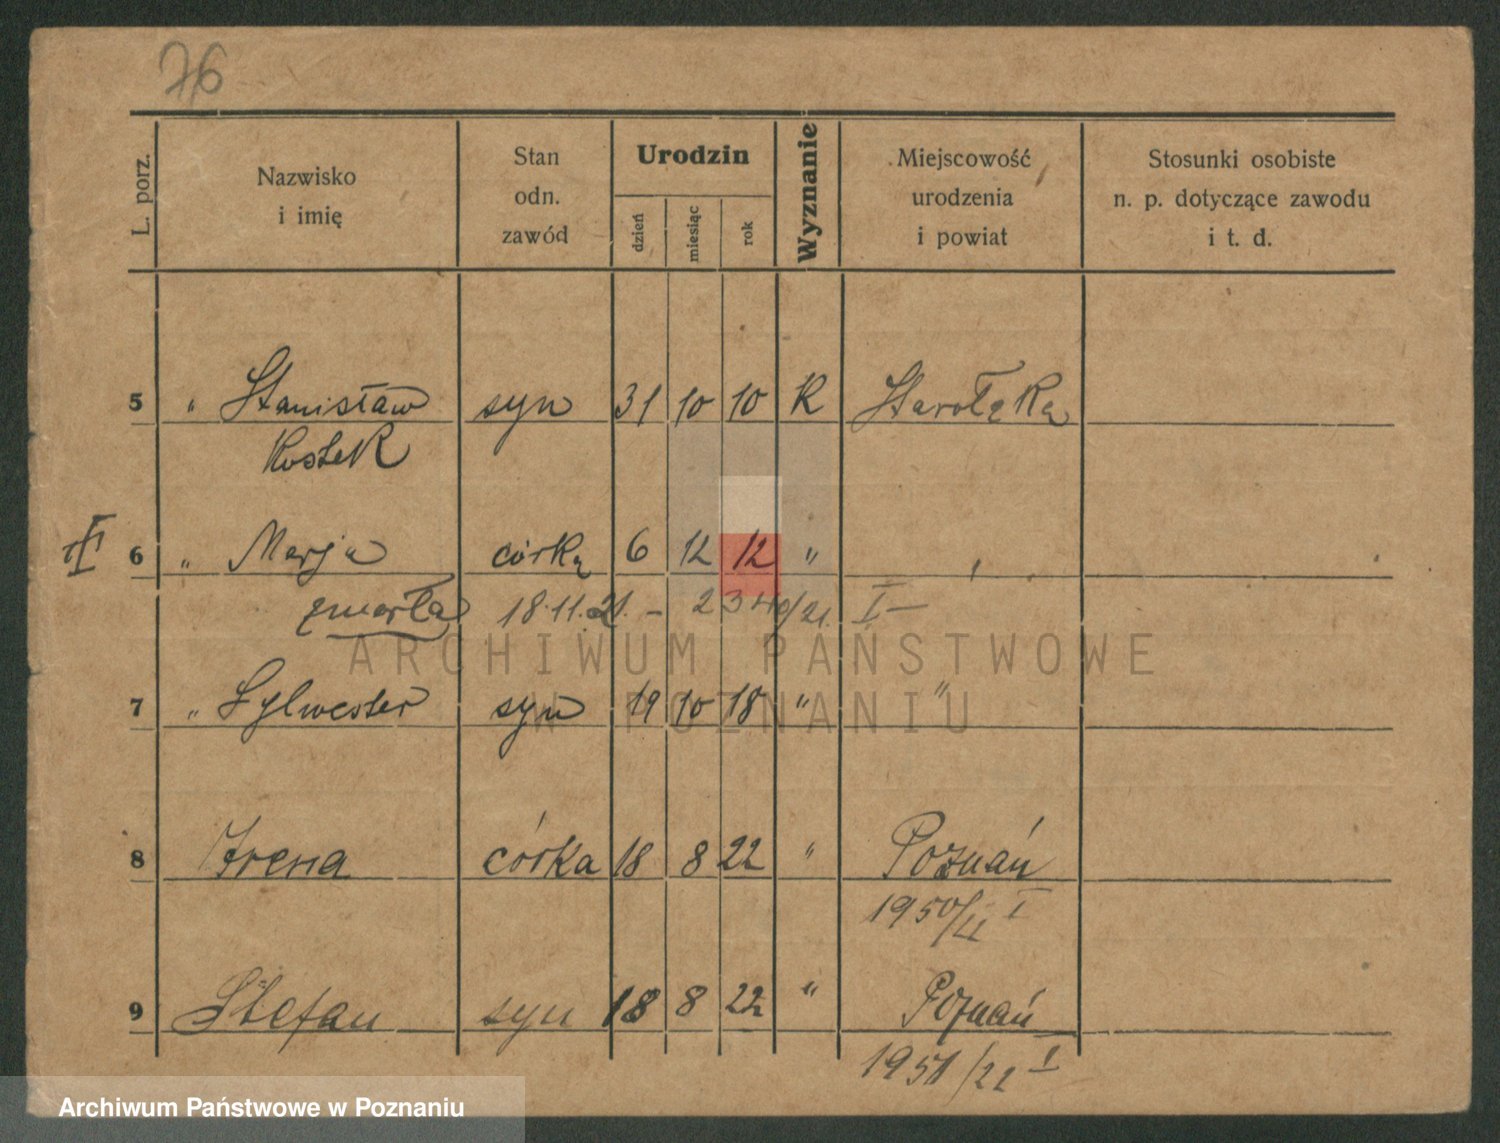 76
L. porz.
Nazwisko
i imię
Stan
odn.
zawód
Urodzin
dzień
miesiąc
rok
Wyznanie
Miejscowość
urodzenia
i powiat
Stosunki osobiste
n. p. dotyczące zawodu
i t. d.
5 " Stanisław syn 31 10 10 K Starołęka
Kostek
6 " Marja córką 6 12 12 "
zmarła 18.11.21. - 2340/21. I-
ARCHIWUM PAŃSTWOWE
7 " Sylwester syn 19 10 18 " "
W POZNANIU
8 Irena córka 18 8 22 " Poznań
1950/22 I
9 Stefan syn 18 8 22 " Poznań
1951/22 I
Archiwum Państwowe w Poznaniu